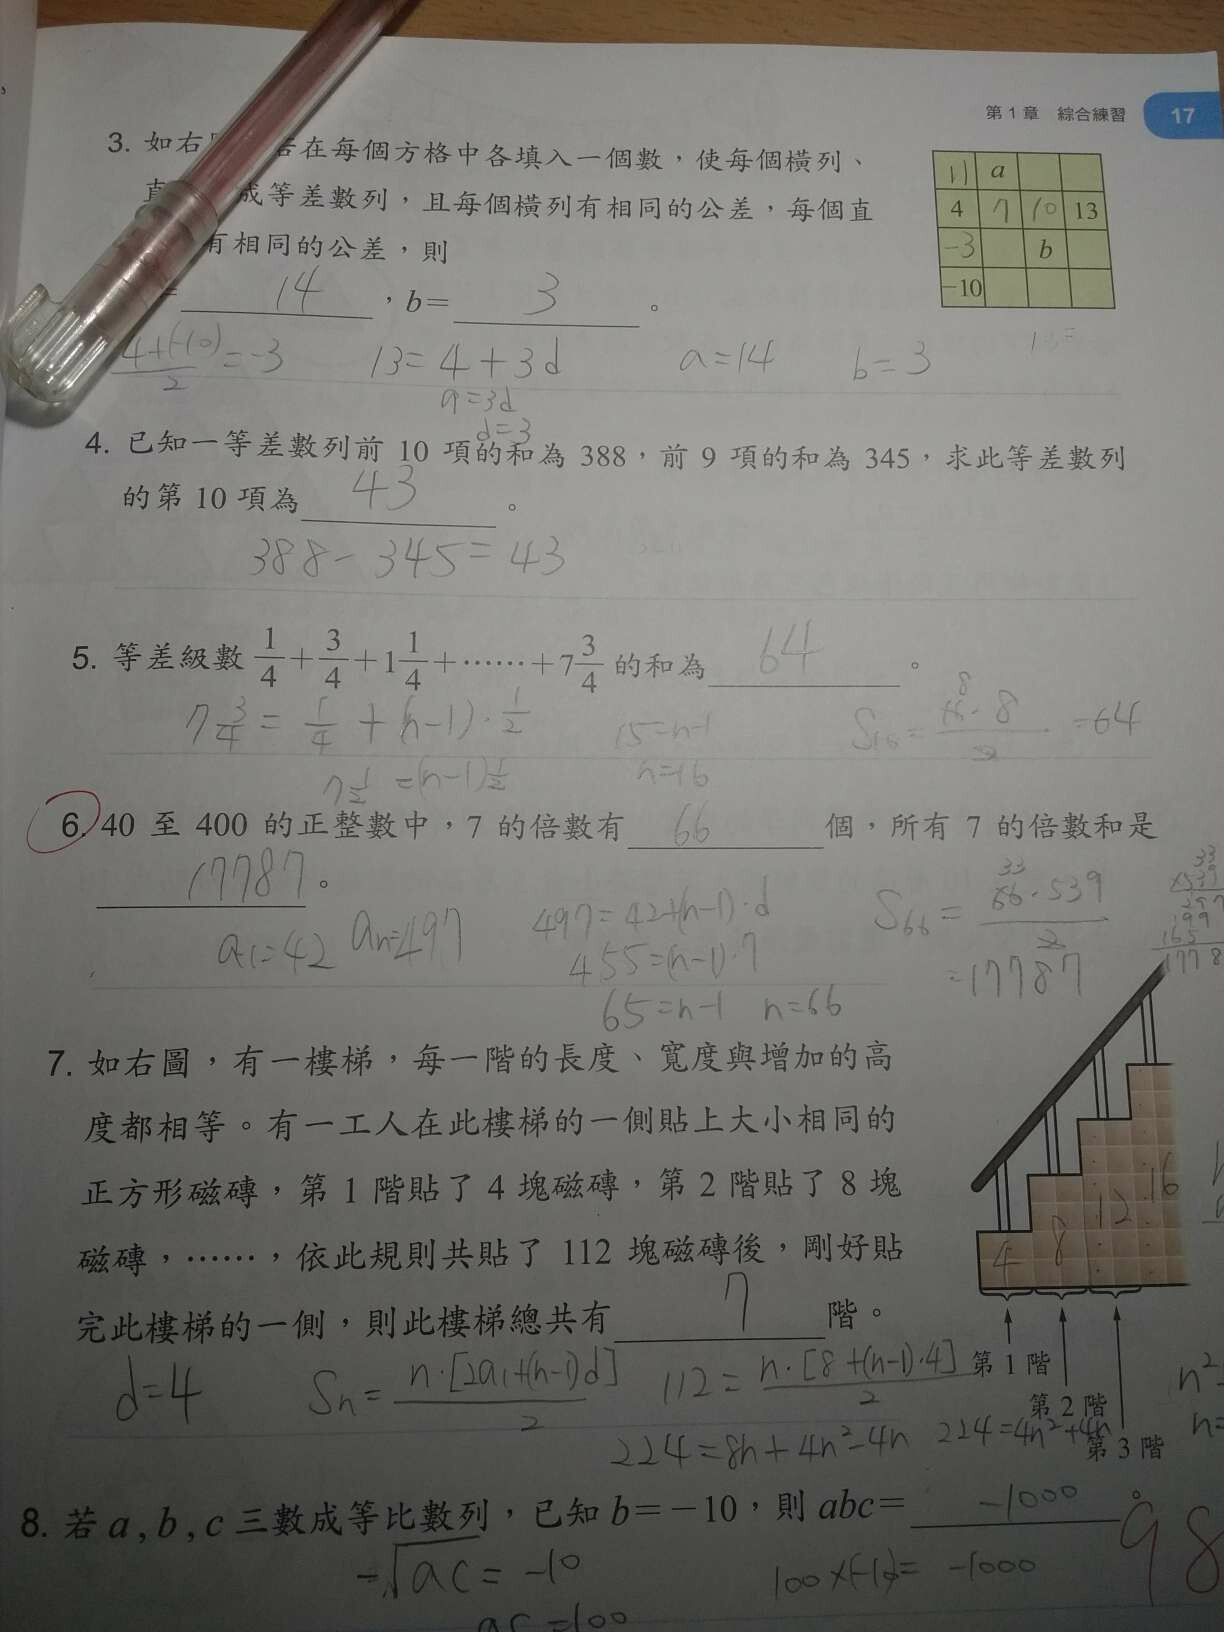 第 1 章 綜合練習 17
3. 如右 在每個方格中各填入一個數，使每個橫列、
成等差數列，且每個橫列有相同的公差，每個直
有相同的公差，則
= 14 ，b= 3 。
11 a
4 7 10 13
-3 b
-10
4+(-10)/2 = -3 13 = 4 + 3d a = 14 b = 3
9=3d
d=3
4. 已知一等差數列前 10 項的和為 388，前 9 項的和為 345，求此等差數列
的第 10 項為 43 。
388 - 345 = 43
5. 等差級數 1/4 + 3/4 + 1 1/4 + …… + 7 3/4 的和為 64 。
7 3/4 = 1/4 + (n-1)·1/2 15=n-1 S16 = 16·8/2 = 64
8
7 1/2 = (n-1)1/2 n=16
6. 40 至 400 的正整數中，7 的倍數有 66 個，所有 7 的倍數和是
17787 。
a1=42 an=497 497=42+(n-1)·d S66 = 66·539/2
33
455=(n-1)·7 =17787
65=n-1 n=66
7. 如右圖，有一樓梯，每一階的長度、寬度與增加的高
度都相等。有一工人在此樓梯的一側貼上大小相同的
正方形磁磚，第 1 階貼了 4 塊磁磚，第 2 階貼了 8 塊
磁磚，……，依此規則共貼了 112 塊磁磚後，剛好貼
完此樓梯的一側，則此樓梯總共有 7 階。
4 8 12 16
第 1 階
第 2 階
第 3 階
d=4 Sn = n·[2a1+(n-1)d]/2 112 = n·[8+(n-1)·4]/2
224=8n+4n²-4n 224=4n²+4n
8. 若 a , b , c 三數成等比數列，已知 b=-10，則 abc= -1000 。
-√ac = -10 100×(-10)= -1000
ac=100
98